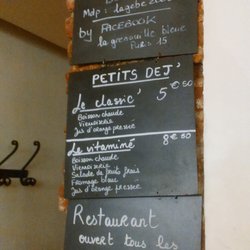 Mdp: lagebe
by FACEBOOK
la grenouille bleue
Paris 15
PETITS DEJ'
Le classic' 5 € 50
Boisson chaude
Viennoiserie
Jus d'orange pressée
Le vitaminé 8 € 50
Boisson chaude
Viennoiserie
Salade de fruits frais
Fromage blanc
Jus d'orange pressée
Restaurant
ouvert tous les